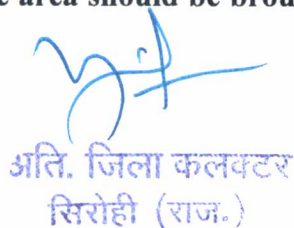 area should be brou
अति. जिला कलक्टर
सिरोही (राज.)